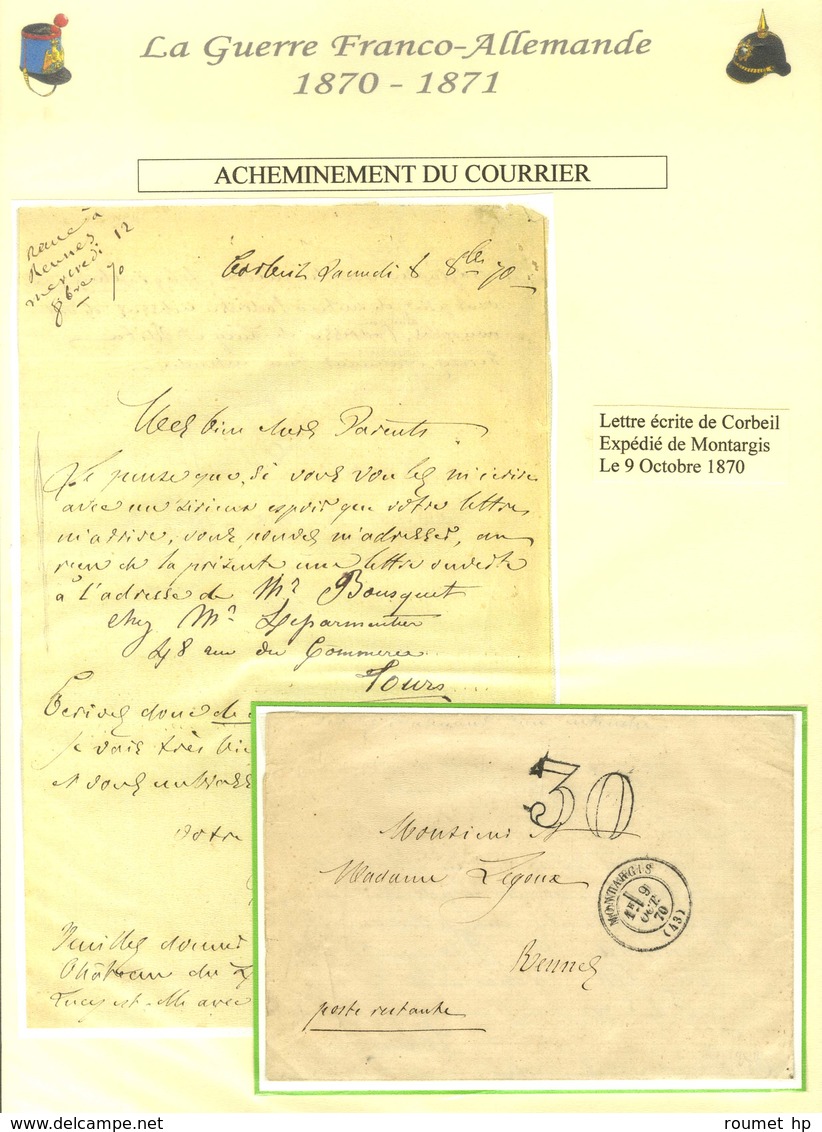 La Guerre Franco-Allemande
1870 - 1871
ACHEMINEMENT DU COURRIER
Rennes
mercredi 12
8bre 70
Corbeil Samedi 8 8bre 70
Mes bien chers Parents
Je pense que, si vous voulez m'écrire
avec un sérieux espoir que votre lettre
m'arrive, vous pouvez m'adresser, au
reçu de la présente une lettre ouverte
à l'adresse de Mr Bousquet
chez Mr Leparmentier
48 rue du Commerce
Tours
Ecrivez donc de
Je vais très bie
et vous embrasse
votre
Veuillez donner
Château du
Lucas est-elle avec
Lettre écrite de Corbeil
Expédié de Montargis
Le 9 Octobre 1870
30
Monsieur
Madame Legoux
Rennes
poste restante
MONTARGIS
1E 9
OCT.
70
(43)
roumet hp